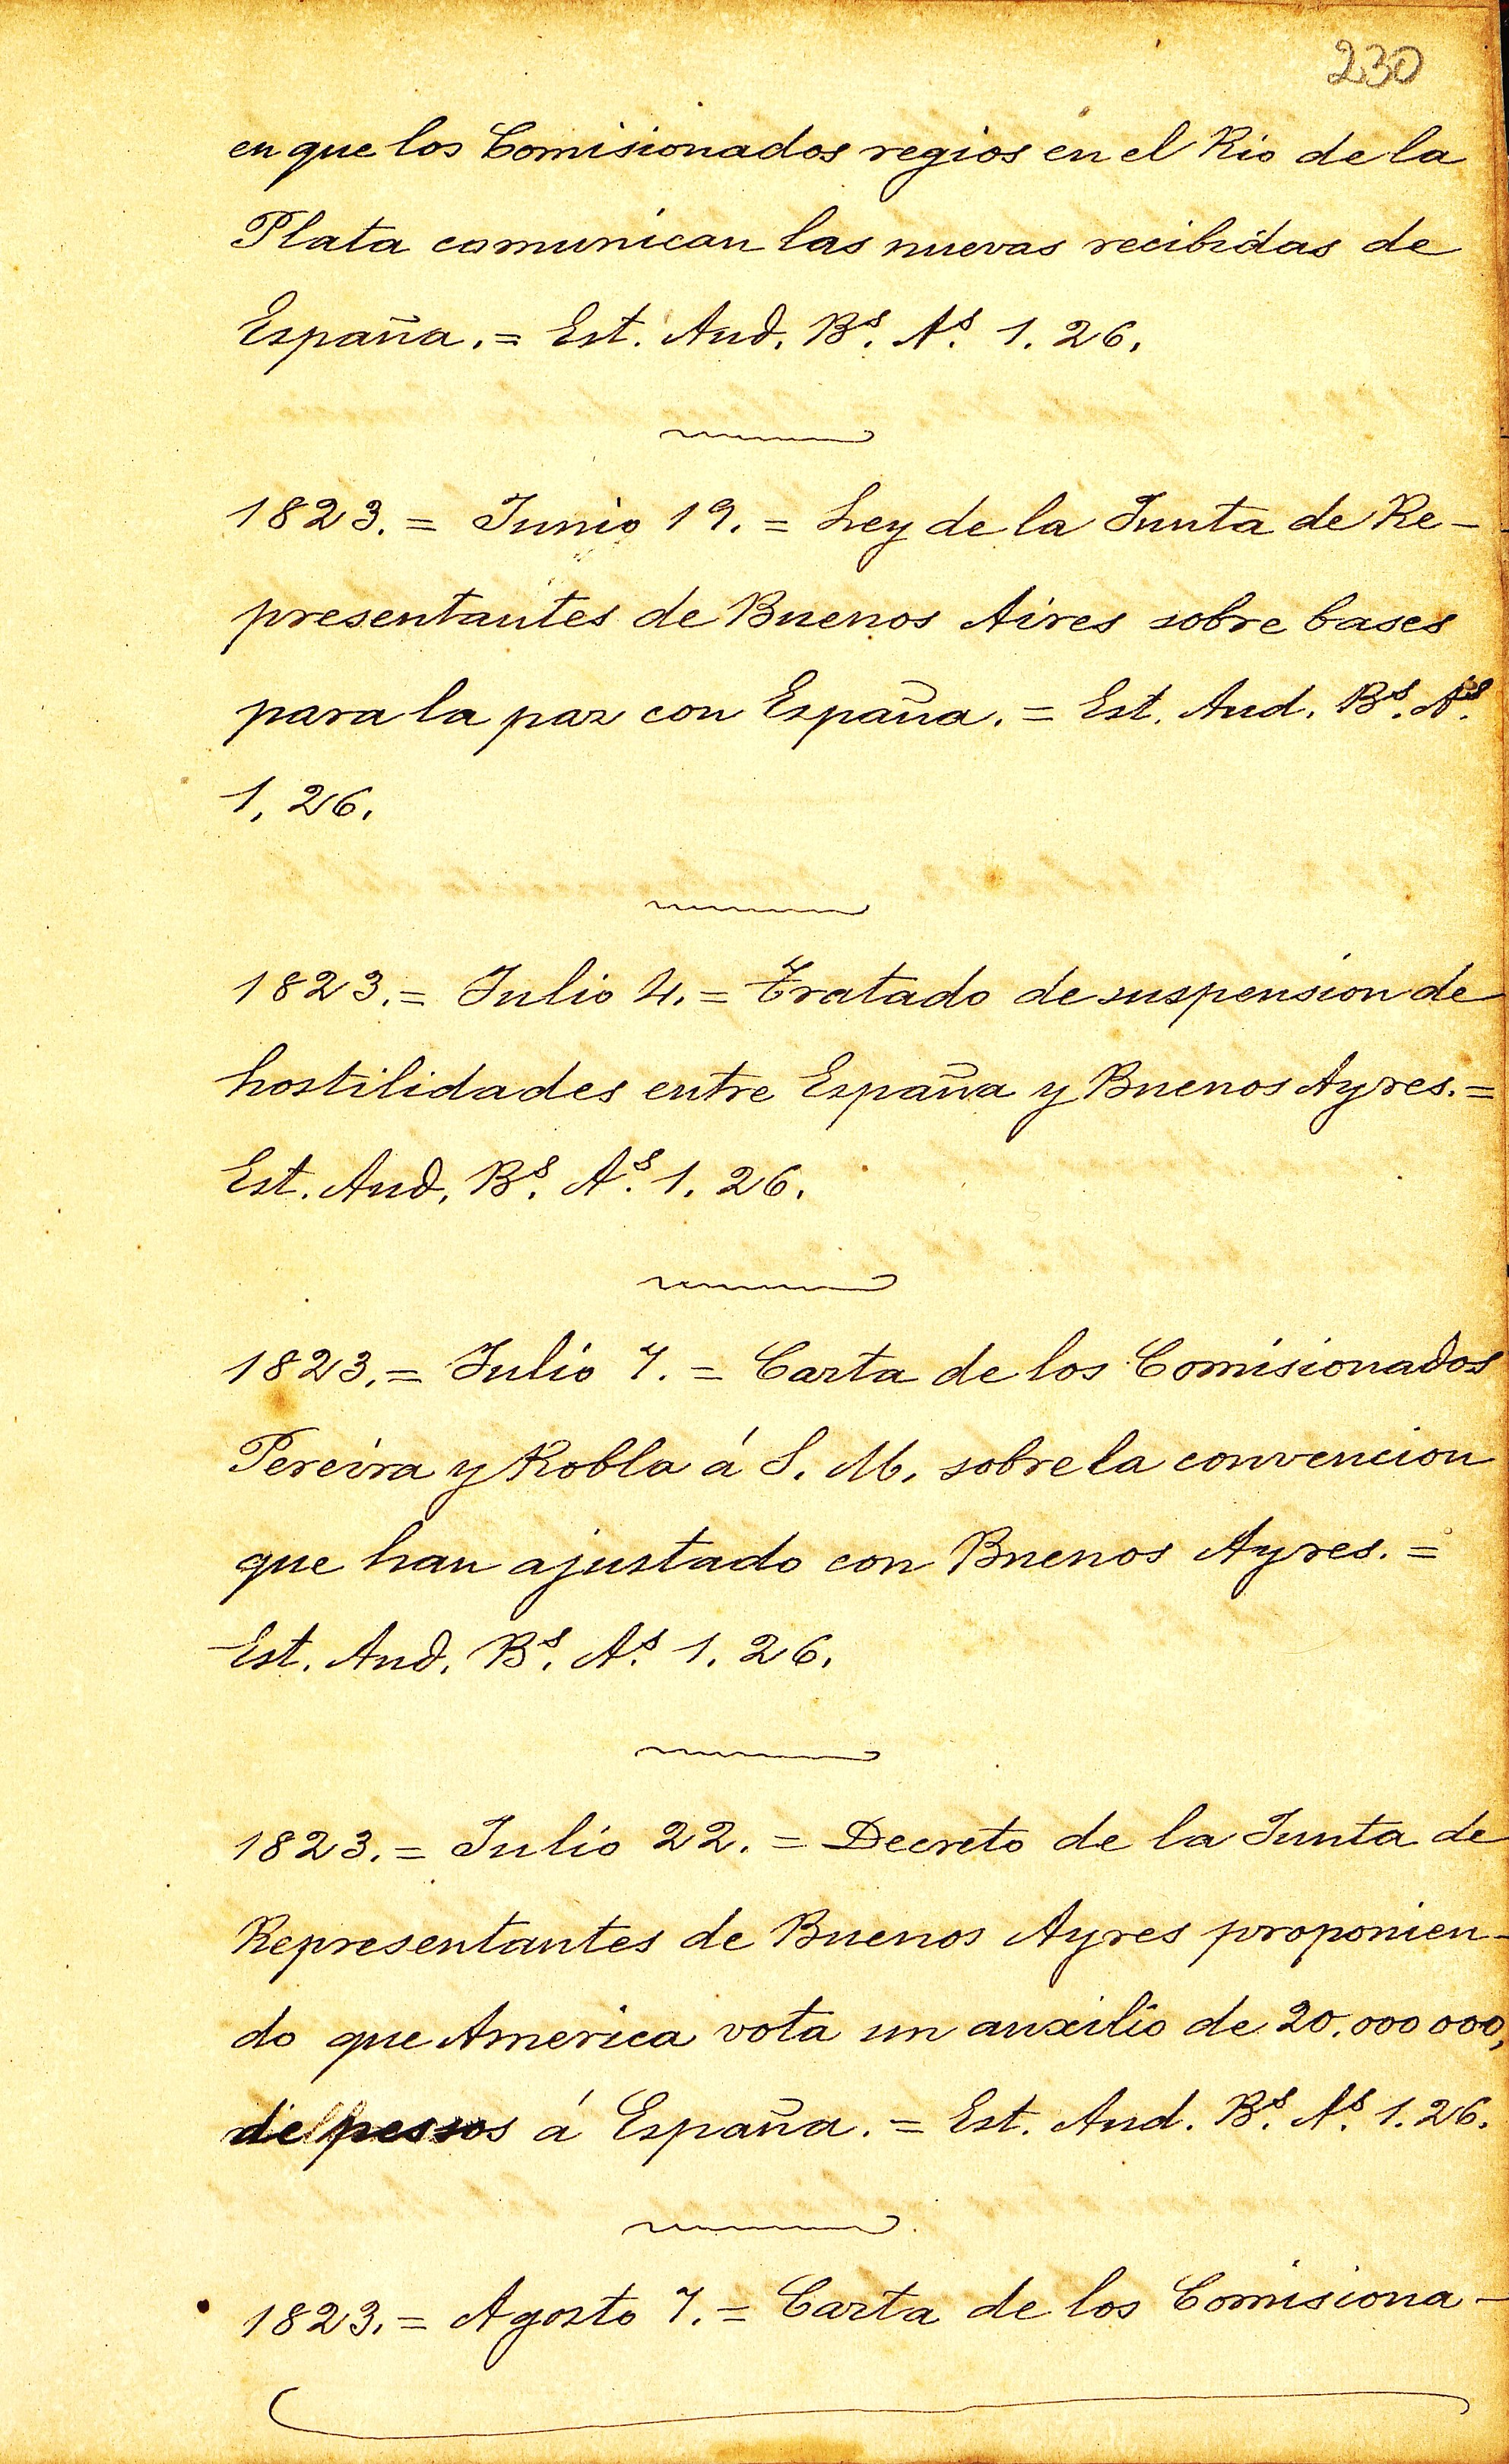 230
en que los Comisionados regios en el Rio de la
Plata comunican las nuevas recibidas de
España. = Est. Aud. Bs. As. 1. 26.
1823. = Junio 19. = Ley de la Junta de Re-
presentantes de Buenos Aires sobre bases
para la paz con España. = Est. Aud. Bs. As.
1, 26.
1823. = Julio 4. = Tratado de suspension de
hostilidades entre España y Buenos Ayres. =
Est. Aud. Bs. As. 1. 26.
1823. = Julio 7. = Carta de los Comisionados
Pereira y Robla á S. M. sobre la convencion
que han ajustado con Buenos Ayres. =
Est. Aud. Bs. As. 1. 26.
1823. = Julio 22. = Decreto de la Junta de
Representantes de Buenos Ayres proponien-
do que America vota un auxilio de 20.000 000,
de pesos á España. = Est. Aud. Bs. As. 1. 26.
1823. = Agosto 7. = Carta de los Comisiona-